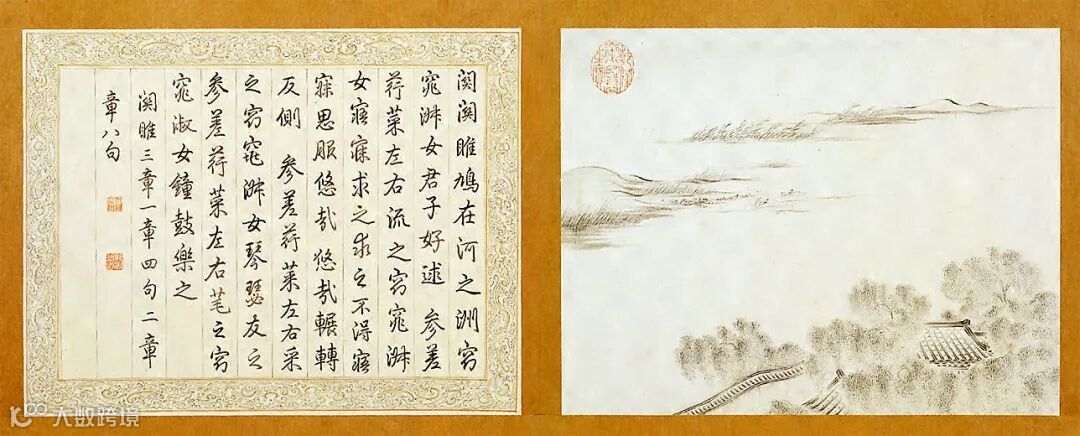 關關雎鳩在河之洲窈
窕淑女君子好逑 參差
荇菜左右流之窈窕淑
女寤寐求之求之不得寤
寐思服悠哉悠哉輾轉
反側 參差荇菜左右采
之窈窕淑女琴瑟友之
參差荇菜左右芼之窈
窕淑女鐘鼓樂之
關雎三章一章四句二章
章八句
大数跨境